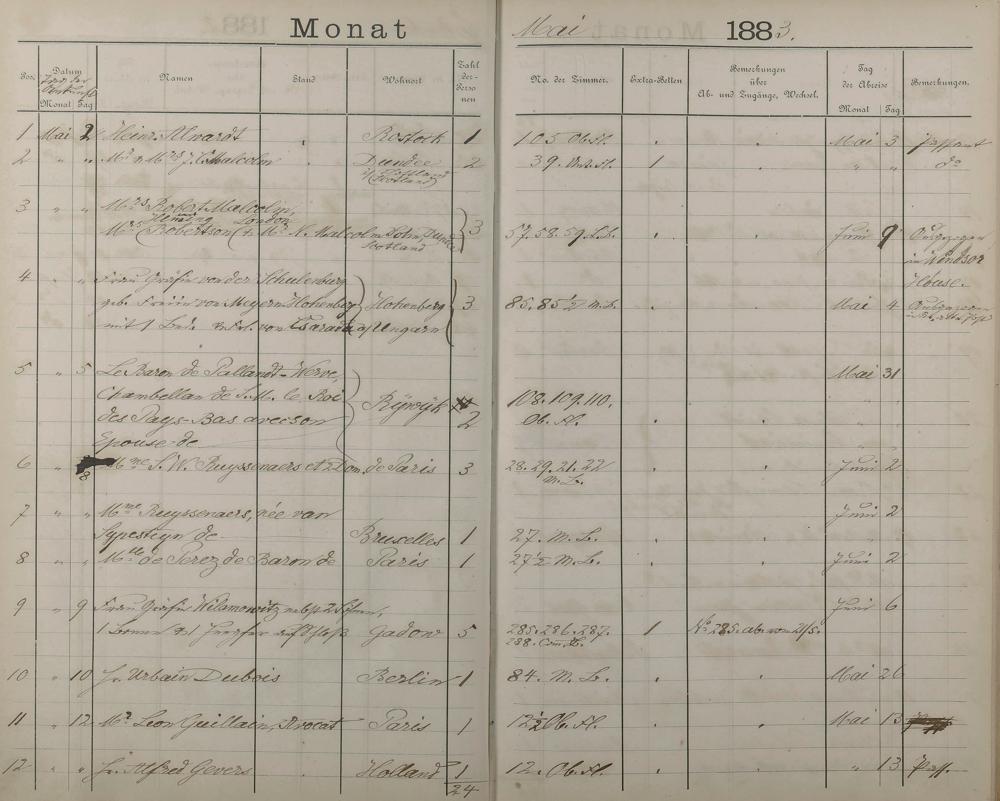 Monat Mai 1883.
Pos. Datum Namen Stand Wohnort Zahl der Personen No. der Zimmer. Extra-Betten Bemerkungen über Ab- und Zugänge, Wechsel. Tag der Abreise Bemerkungen.
Monat Tag Monat Tag
1 Mai 2 Heinr. Alwardt Rostock 1 105 Ob. St. Mai 3 Passant
2 " " Mr & Mrs J. Malcolm Dundee 2 39. Unt. St. 1 " " do
Scotland
3 " " Mrs Robert Malcolm,
London
Mrs Robertson & Mr N. Malcolm 3 57. 58. 59. Juni 9
Scotland in Windsor
House.
4 " " Frau Gräfin von der Schulenburg
geb. Freiin von Meyern Hohenberg Hohenberg 3 85. 85½ M. L. Mai 4
mit 1 Ungarn
5 " 5 Le Baron de Pallandt-Werve, Mai 31
Chambellan de S. M. le Roi Ryswyk 108. 109. 110.
des Pays-Bas avec son 2 Ob. St.
Epouse de
6 " 8 Mme S. W. Ruyssenaers et 2 Dom. de Paris 3 28. 29. 21. 22 Juni 2
M. L.
7 " " Mme Ruyssenaers, née van Juni 2
Sypesteyn de Bruxelles 1 27. M. L.
8 " " Mlle de Perez de Baron de Paris 1 27½ M. L. Juni 2
9 " 9 Frau Gräfin Wilamowitz nebst 2 Söhnen, Juni 6
1 Bonne & 1 Jungfer Gadow 5 285. 286. 287. 1 No 285. ab vom 21/5.
288.
10 " 10 Hr. Urbain Dubois Berlin 1 84. M. L. Mai 26
11 " 12 Mr Leon Guillain, Avocat Paris 1 12½ Ob. St. Mai 13
12 " " Hr. Alfred Gevers Holland 1 12. Ob. St. " 13 Pass.
24